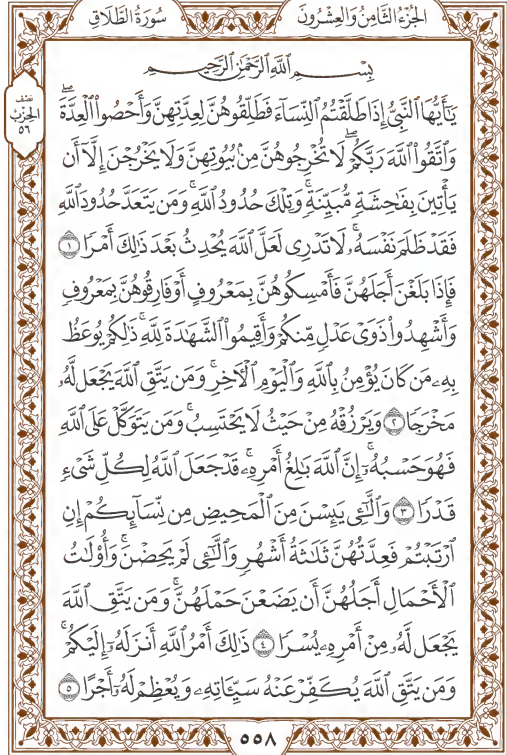 الجُزْءُ الثَّامِنُ وَالعِشْرُونَ
سُورَةُ الطَّلَاقِ
نصف
الحِزْب
٥٦
بِسْمِ ٱللَّهِ ٱلرَّحْمَٰنِ ٱلرَّحِيمِ
يَٰٓأَيُّهَا ٱلنَّبِيُّ إِذَا طَلَّقْتُمُ ٱلنِّسَآءَ فَطَلِّقُوهُنَّ لِعِدَّتِهِنَّ وَأَحْصُوا۟ ٱلْعِدَّةَۖ
وَٱتَّقُوا۟ ٱللَّهَ رَبَّكُمْۖ لَا تُخْرِجُوهُنَّ مِنۢ بُيُوتِهِنَّ وَلَا يَخْرُجْنَ إِلَّآ أَن
يَأْتِينَ بِفَٰحِشَةٍ مُّبَيِّنَةٍۚ وَتِلْكَ حُدُودُ ٱللَّهِۚ وَمَن يَتَعَدَّ حُدُودَ ٱللَّهِ
فَقَدْ ظَلَمَ نَفْسَهُۥۚ لَا تَدْرِى لَعَلَّ ٱللَّهَ يُحْدِثُ بَعْدَ ذَٰلِكَ أَمْرًا ١
فَإِذَا بَلَغْنَ أَجَلَهُنَّ فَأَمْسِكُوهُنَّ بِمَعْرُوفٍ أَوْ فَارِقُوهُنَّ بِمَعْرُوفٍ
وَأَشْهِدُوا۟ ذَوَىْ عَدْلٍ مِّنكُمْ وَأَقِيمُوا۟ ٱلشَّهَٰدَةَ لِلَّهِۚ ذَٰلِكُمْ يُوعَظُ
بِهِۦ مَن كَانَ يُؤْمِنُ بِٱللَّهِ وَٱلْيَوْمِ ٱلْءَاخِرِۚ وَمَن يَتَّقِ ٱللَّهَ يَجْعَل لَّهُۥ
مَخْرَجًا ٢ وَيَرْزُقْهُ مِنْ حَيْثُ لَا يَحْتَسِبُۚ وَمَن يَتَوَكَّلْ عَلَى ٱللَّهِ
فَهُوَ حَسْبُهُۥٓۚ إِنَّ ٱللَّهَ بَٰلِغُ أَمْرِهِۦۚ قَدْ جَعَلَ ٱللَّهُ لِكُلِّ شَىْءٍ
قَدْرًا ٣ وَٱلَّٰٓـِٔى يَئِسْنَ مِنَ ٱلْمَحِيضِ مِن نِّسَآئِكُمْ إِنِ
ٱرْتَبْتُمْ فَعِدَّتُهُنَّ ثَلَٰثَةُ أَشْهُرٍ وَٱلَّٰٓـِٔى لَمْ يَحِضْنَۚ وَأُو۟لَٰتُ
ٱلْأَحْمَالِ أَجَلُهُنَّ أَن يَضَعْنَ حَمْلَهُنَّۚ وَمَن يَتَّقِ ٱللَّهَ
يَجْعَل لَّهُۥ مِنْ أَمْرِهِۦ يُسْرًا ٤ ذَٰلِكَ أَمْرُ ٱللَّهِ أَنزَلَهُۥٓ إِلَيْكُمْۚ
وَمَن يَتَّقِ ٱللَّهَ يُكَفِّرْ عَنْهُ سَيِّـَٔاتِهِۦ وَيُعْظِمْ لَهُۥٓ أَجْرًا ٥
٥٥٨